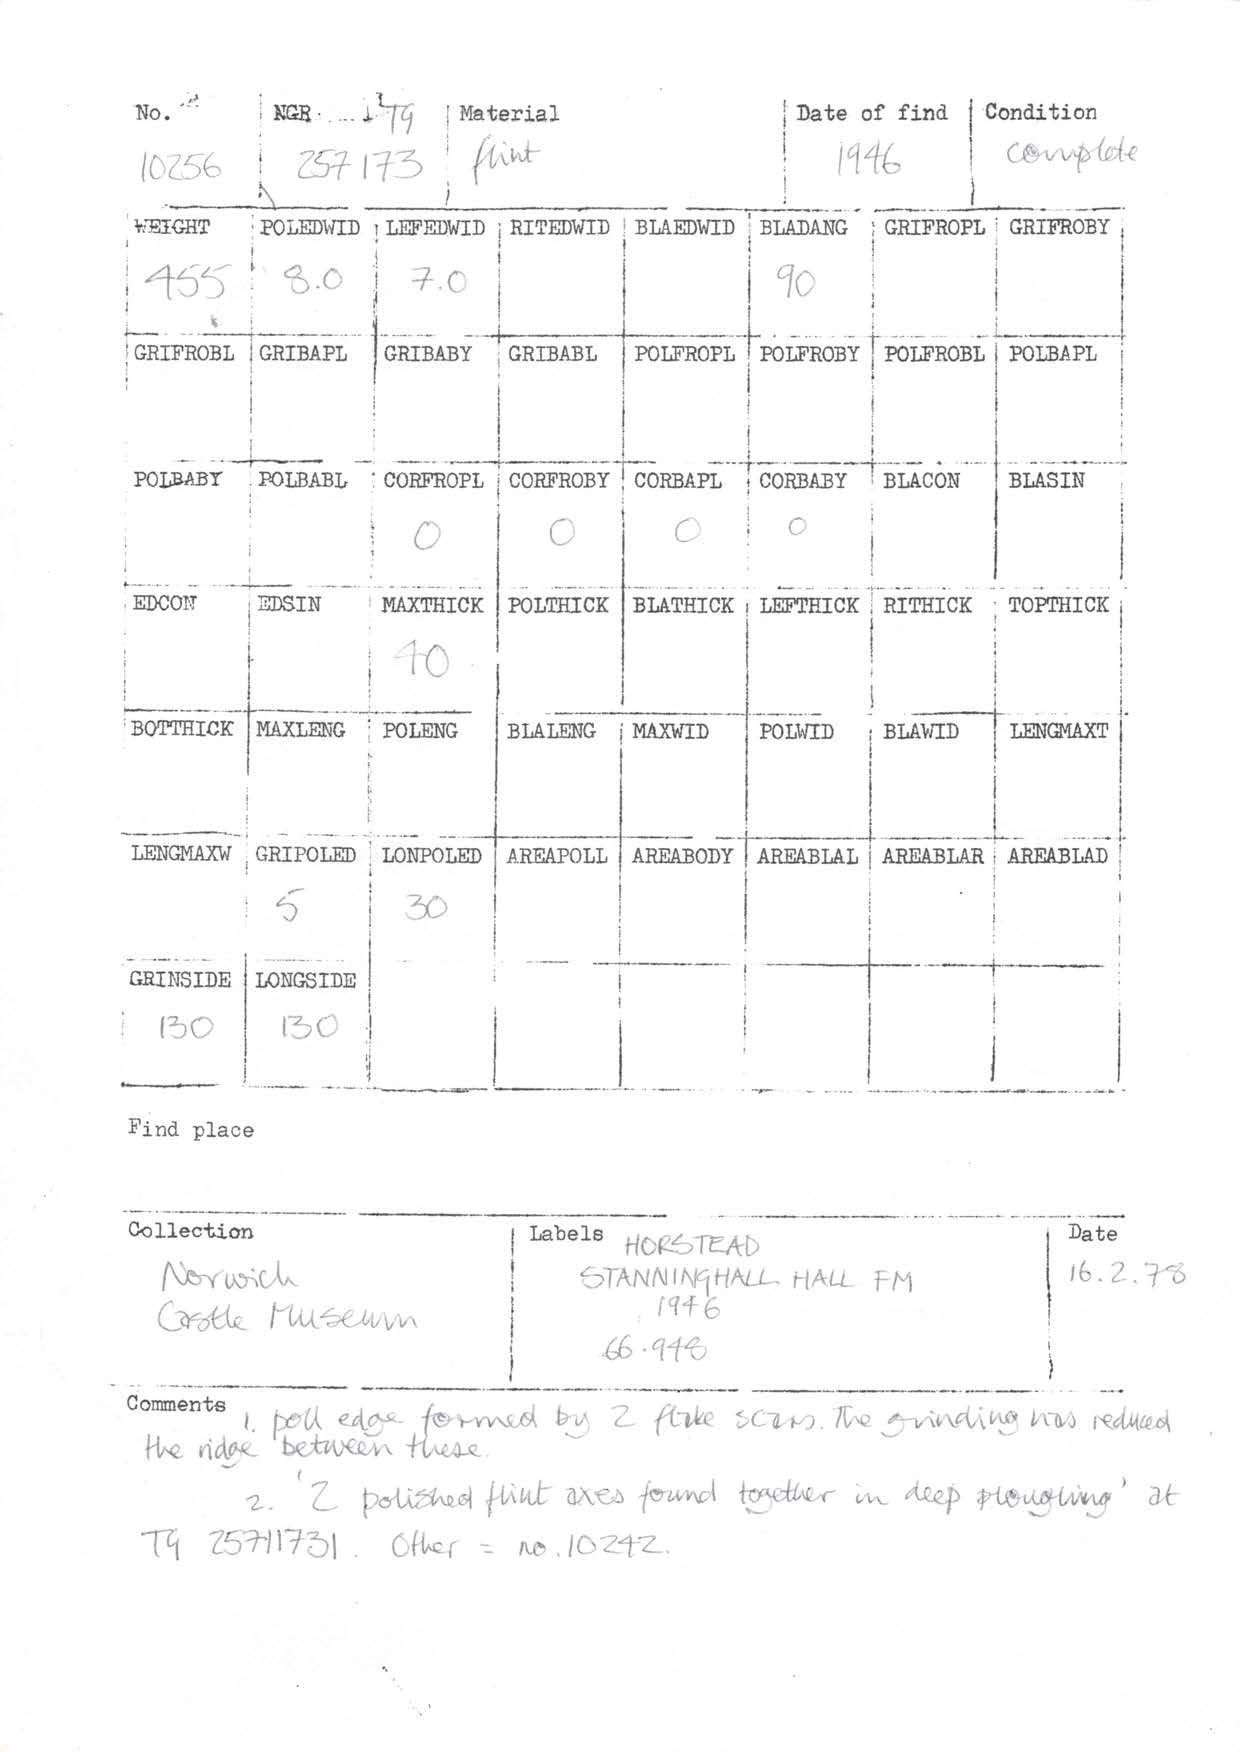 No. NGR TG Material Date of find Condition
10256 257173 flint 1946 complete
WEIGHT POLEDWID LEFEDWID RITEDWID BLAEDWID BLADANG GRIFROPL GRIFROBY
455 8.0 7.0 90
GRIFROBL GRIBAPL GRIBABY GRIBABL POLFROPL POLFROBY POLFROBL POLBAPL
POLBABY POLBABL CORFROPL CORFROBY CORBAPL CORBABY BLACON BLASIN
0 0 0 0
EDCON EDSIN MAXTHICK POLTHICK BLATHICK LEFTHICK RITHICK TOPTHICK
40
BOTTHICK MAXLENG POLENG BLALENG MAXWID POLWID BLAWID LENGMAXT
LENGMAXW GRIPOLED LONPOLED AREAPOLL AREABODY AREABLAL AREABLAR AREABLAD
5 30
GRINSIDE LONGSIDE
130 130
Find place
Collection Labels HORSTEAD Date
Norwich STANNINGHALL HALL FM 16.2.78
Castle Museum 1946
66.948
Comments 1. poll edge formed by 2 flake scars. The grinding has reduced
the ridge between these.
2. '2 polished flint axes found together in deep ploughing' at
TG 25711731. Other = no. 10242.